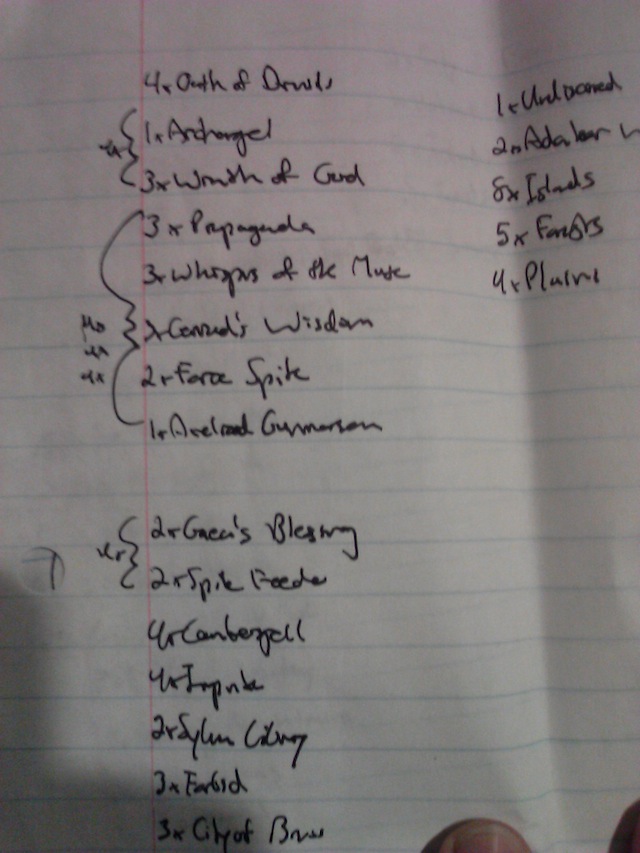 4x Oath of Druids
1x Archangel
3x Wrath of God
3x Propaganda
3x Whispers of the Muse
Gerrard's Wisdom
2x Force Spike
1x Axelrod Gunnarson
2x Gaea's Blessing
2x Spike Feeder
4x Counterspell
4x Impulse
2x Sylvan Library
3x Forbid
3x City of Brass
1x Undiscovered
2x Adarkar W
8x Islands
5x Forests
4x Plains